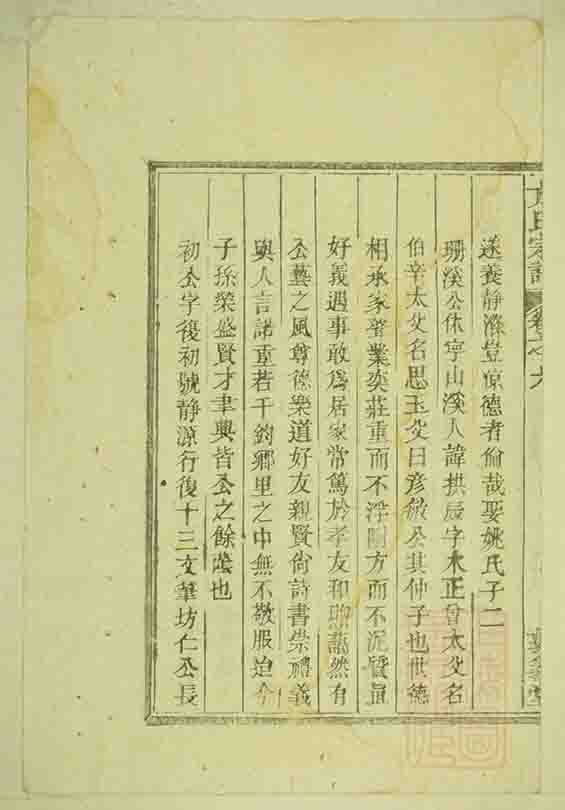 遂養靜滌豈涼德者倫哉娶姚氏子二
珊溪公休寧山溪人諱拱辰字木正曾太父名
伯辛太父名思玉父曰彥敏公其仲子也世德
相承家管業奕莊重而不浮圓方而不泥質直
好義遇事敢爲居家常篤於孝友和藹然有
公藝之風尊德樂道好友親賢尙詩書崇禮義
與人言諾重若千鈞鄉里之中無不敬服迨今
子孫榮盛賢才聿興皆公之餘蔭也
初公字復初號靜源行復十三文華坊仁公長